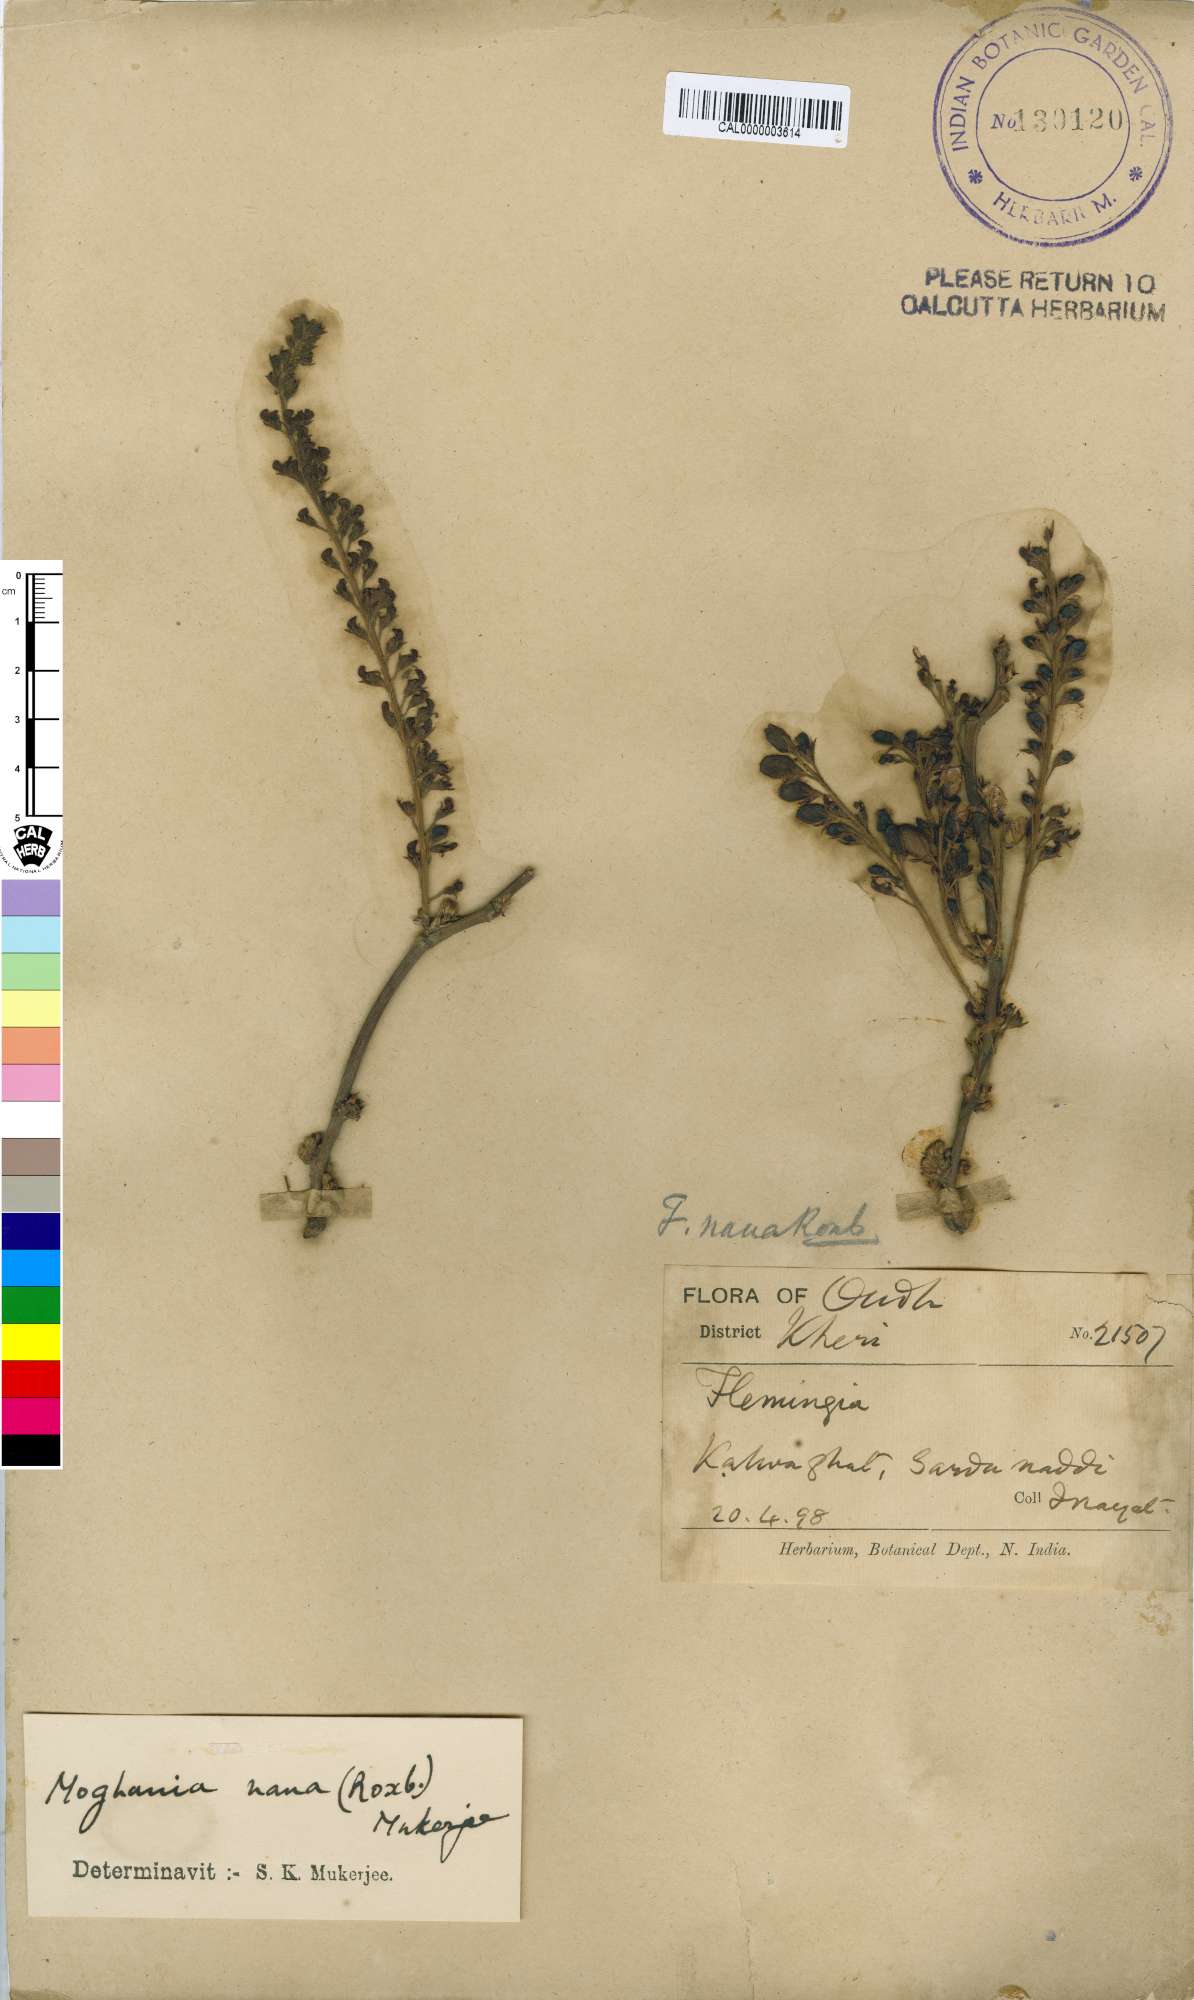 CAL0000003614
INDIAN BOTANIC GARDEN CAL.
No 130120
HERBARIUM.
PLEASE RETURN TO
CALCUTTA HERBARIUM
0
cm
1
2
3
4
5
CAL
HERB
CENTRAL NATIONAL HERBARIUM
F. nana Roxb.
FLORA OF Oudh
District Kheri No. 21507
Flemingia
ghat, Sarda naddi
Coll Inayat.
20.4.98
Herbarium, Botanical Dept., N. India.
Moghania nana (Roxb.)
Mukerjee
Determinavit :- S. K. Mukerjee.